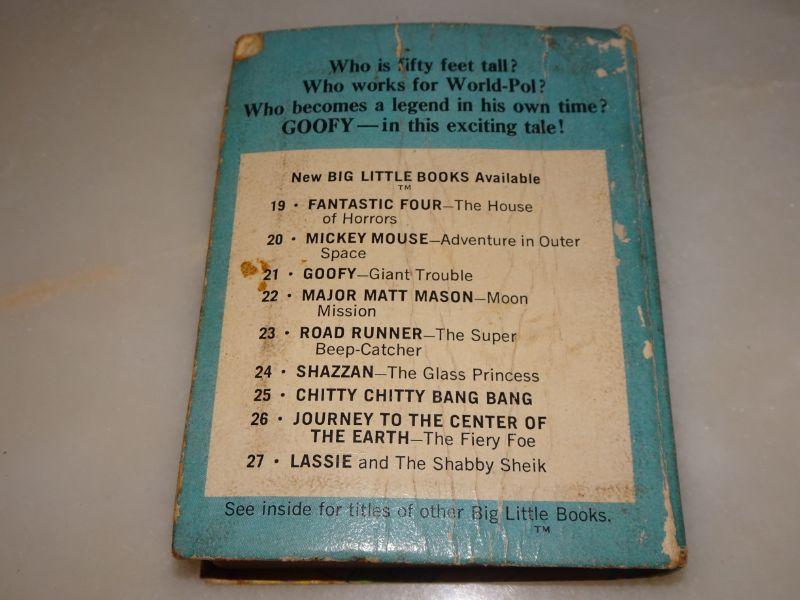 Who is fifty feet tall?
Who works for World-Pol?
Who becomes a legend in his own time?
GOOFY—in this exciting tale!
New BIG LITTLE BOOKS Available
TM
19 • FANTASTIC FOUR—The House
of Horrors
20 • MICKEY MOUSE—Adventure in Outer
Space
21 • GOOFY—Giant Trouble
22 • MAJOR MATT MASON—Moon
Mission
23 • ROAD RUNNER—The Super
Beep-Catcher
24 • SHAZZAN—The Glass Princess
25 • CHITTY CHITTY BANG BANG
26 • JOURNEY TO THE CENTER OF
THE EARTH—The Fiery Foe
27 • LASSIE and The Shabby Sheik
See inside for titles of other Big Little Books.
TM